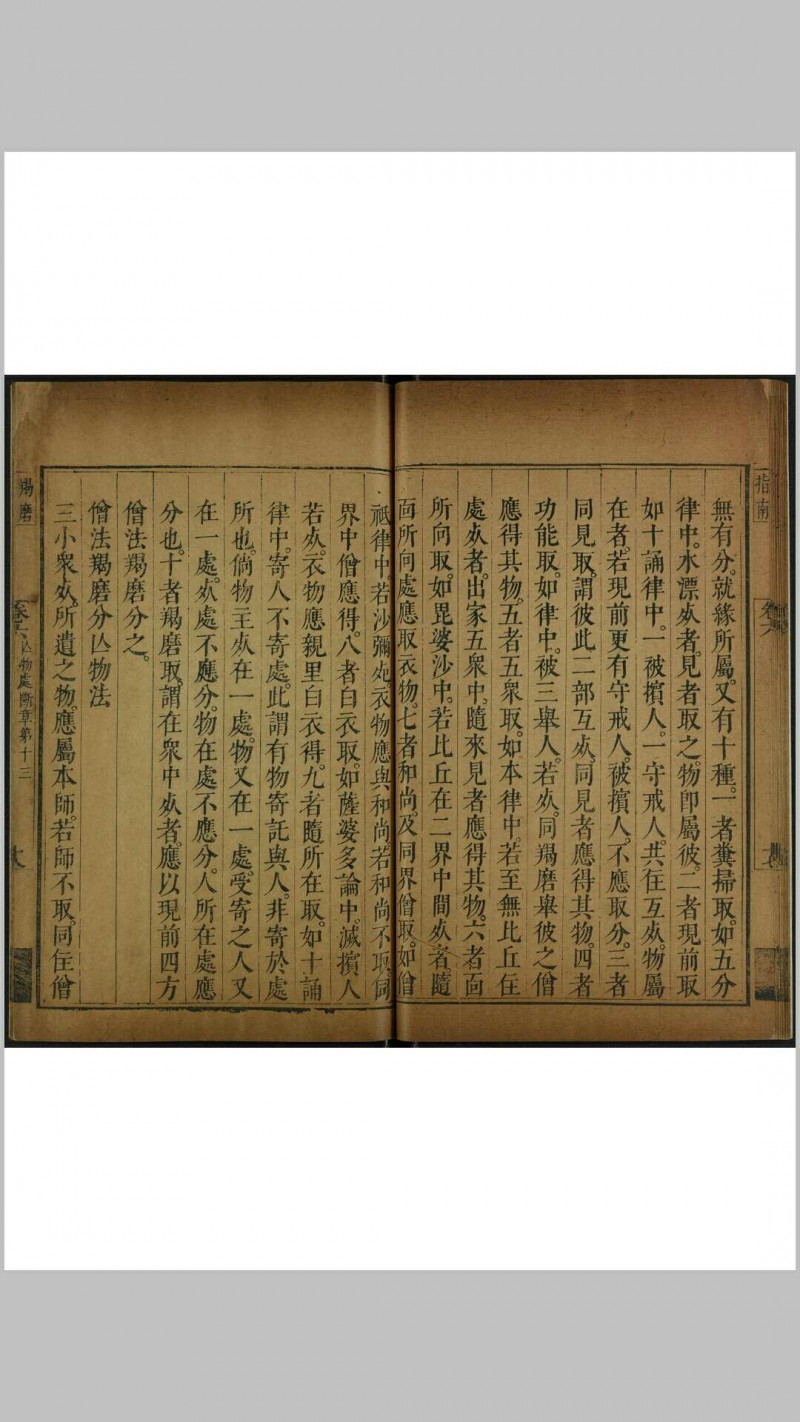 指南
卷六
無有分。就緣所屬。又有十種。一者糞掃取。如五分
律中。水漂𣦸者。見者取之。物卽屬彼。二者現前取
如十誦律中。一被擯人。一守戒人。共住互𣦸。物屬
在者。若現前更有守戒人。被擯人。不應取分。三者
同見取。謂彼此二部互𣦸。同見者應得其物。四者
功能取。如律中。被三舉人。若𣦸。同羯磨舉彼之僧
應得其物。五者五衆取。如本律中。若至無比丘住
處𣦸者。出家五衆中。隨來見者應得其物。六者面
所向取。如毘婆沙中。若比丘在二界中間𣦸者。隨
面所向處應取衣物。七者和尚。及同界僧取。如僧
祇律中。若沙彌死。衣物應與和尚。若和尚不取。同
界中僧應得。八者白衣取。如薩婆多論中。滅擯人
若𣦸。衣物應親里白衣得。九者隨所在取。如十誦
律中。寄人不寄處。此謂有物寄託與人。非寄於處
所也。倘物主𣦸在一處。物又在一處。受寄之人又
在一處。𣦸處不應分。物在處不應分。人所在處應
分也。十者羯磨取。謂在衆中𣦸者。應以現前四方
僧法羯磨分之。
僧法羯磨分亾物法
三小衆𣦸。所遺之物。應屬本師。若師不取。同住僧
羯磨
卷六
亾物處斷章第十三